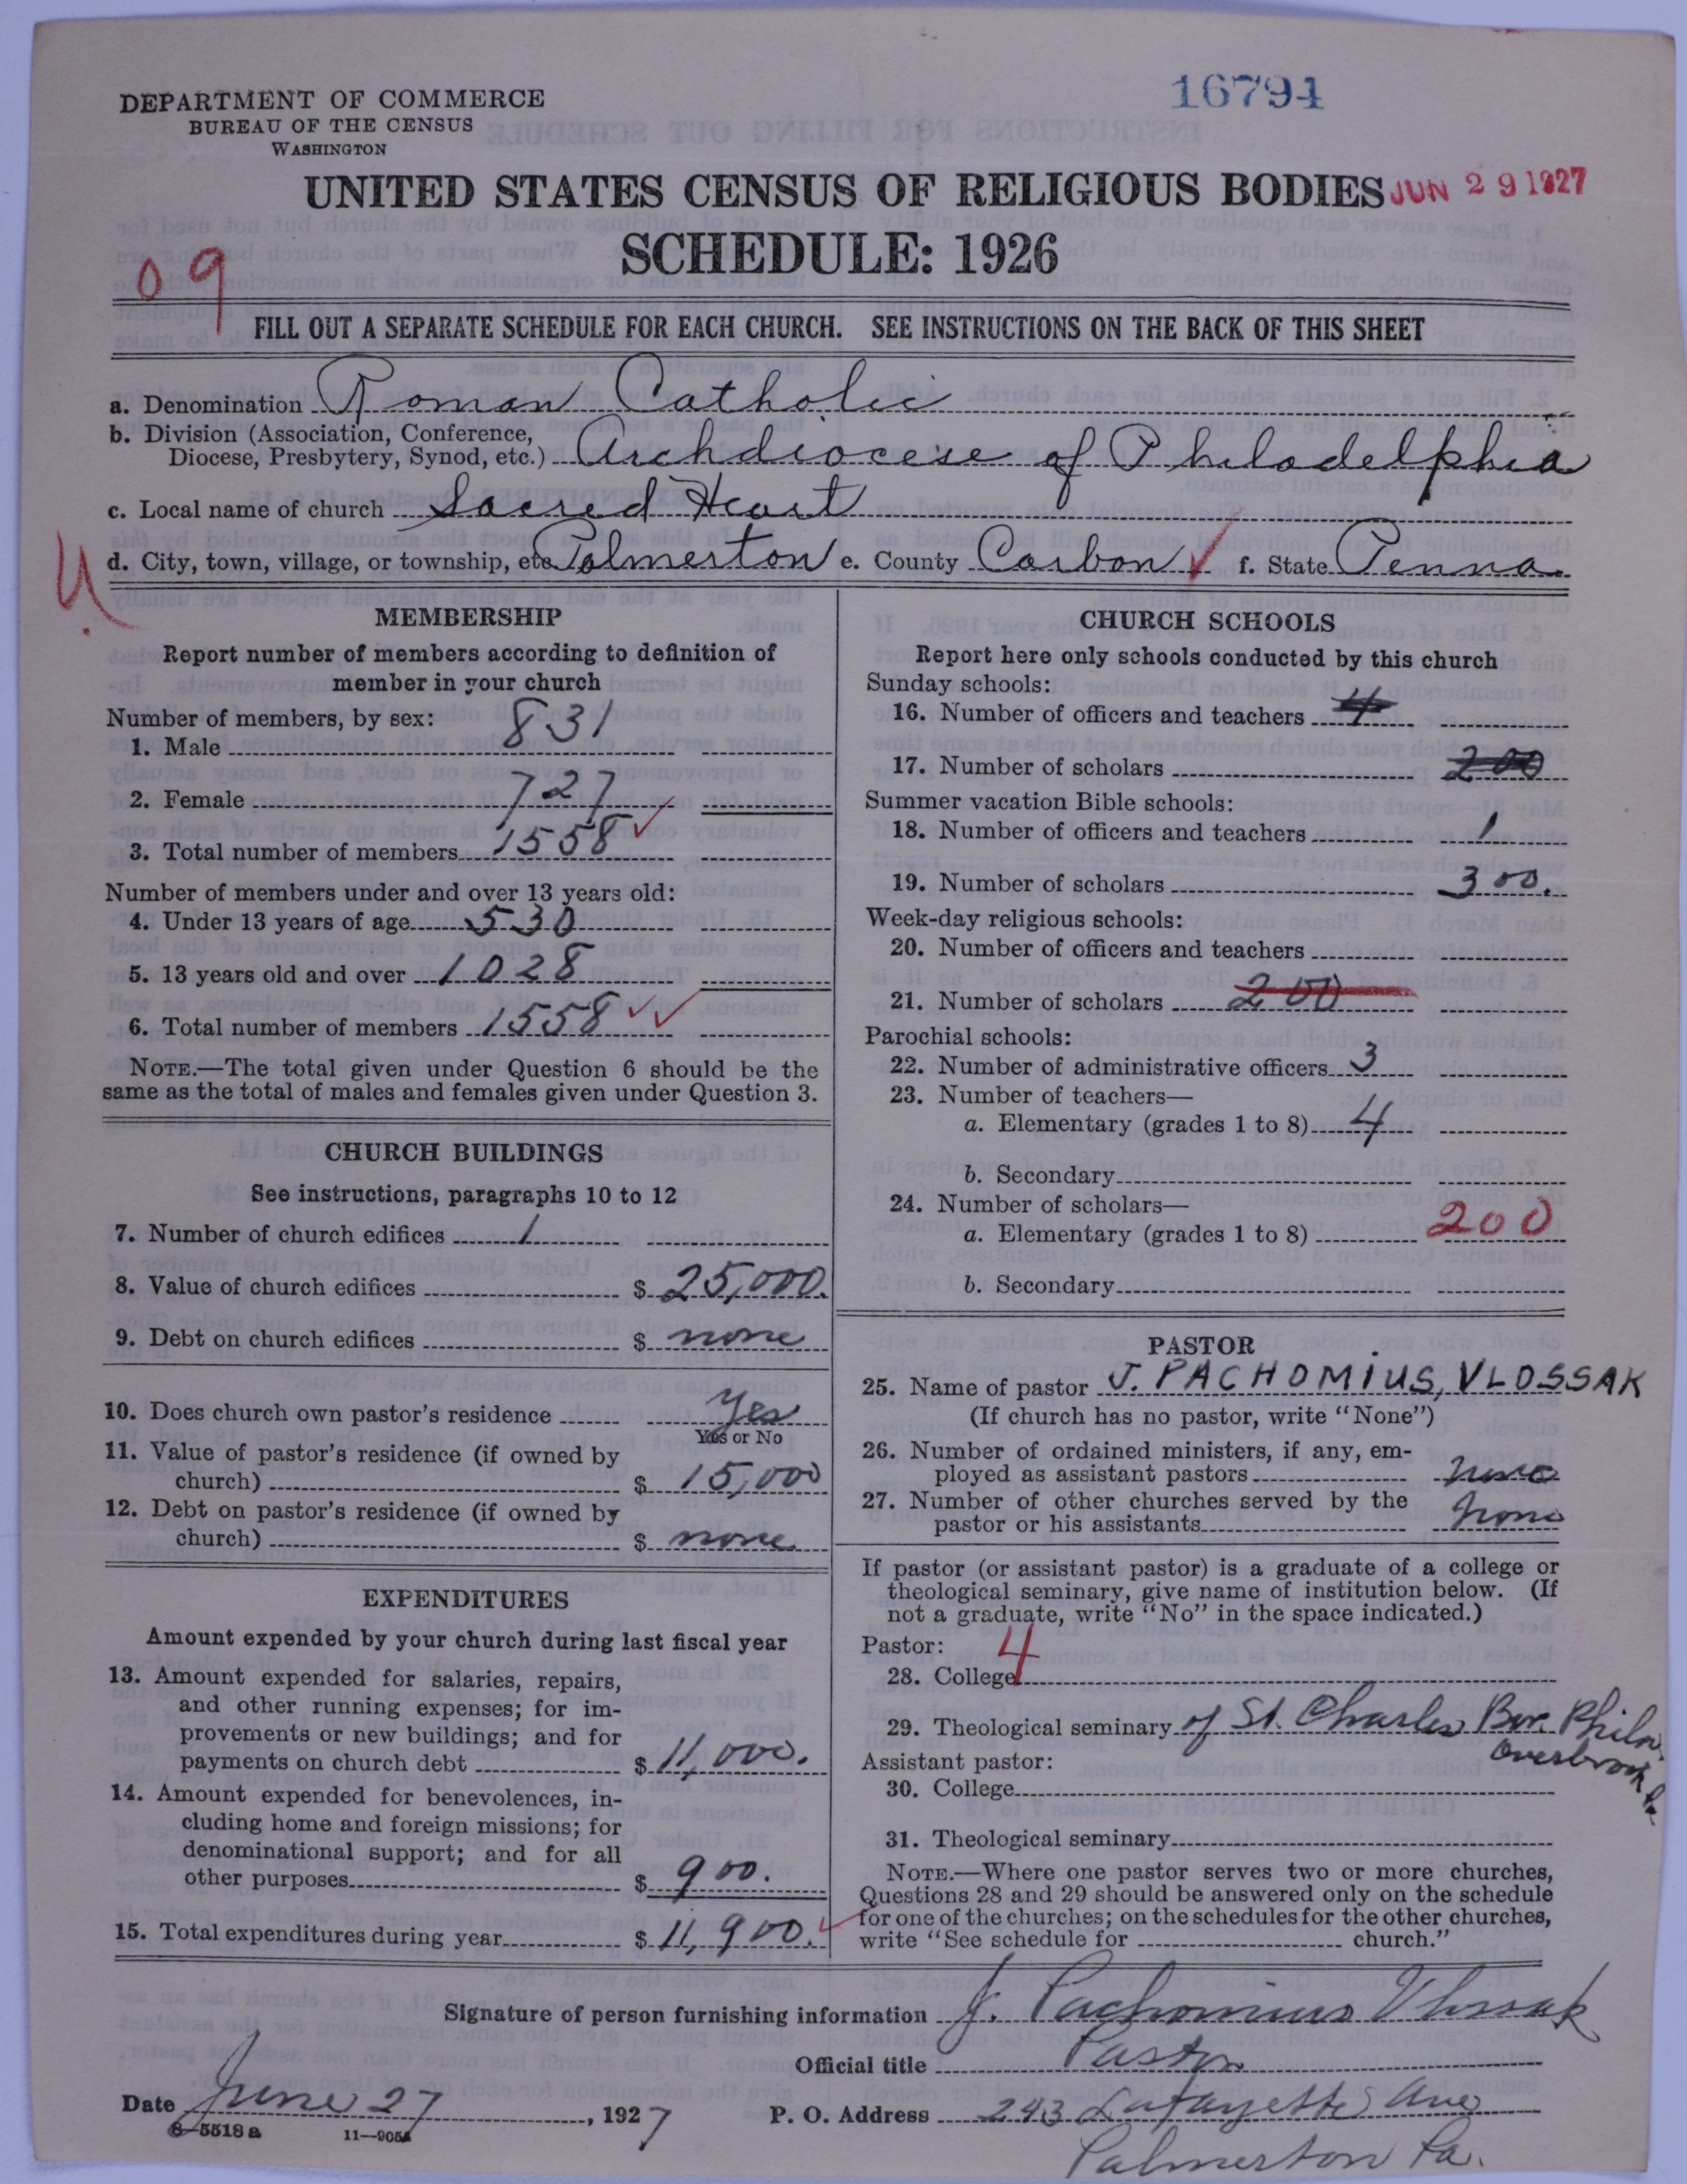 16794
DEPARTMENT OF COMMERCE
BUREAU OF THE CENSUS
WASHINGTON
UNITED STATES CENSUS OF RELIGIOUS BODIES
JUN 29 1927
SCHEDULE: 1926
09
FILL OUT A SEPARATE SCHEDULE FOR EACH CHURCH. SEE INSTRUCTIONS ON THE BACK OF THIS SHEET
a. Denomination Roman Catholic
b. Division (Association, Conference,
Diocese, Presbytery, Synod, etc.) Archdiocese of Philadelphia
c. Local name of church Sacred Heart
d. City, town, village, or township, etc. Palmerton e. County Carbon f. State Penna.
U
MEMBERSHIP
Report number of members according to definition of
member in your church
Number of members, by sex:
1. Male 831
2. Female 727
3. Total number of members 1558
Number of members under and over 13 years old:
4. Under 13 years of age 530
5. 13 years old and over 1028
6. Total number of members 1558
NOTE.—The total given under Question 6 should be the
same as the total of males and females given under Question 3.
CHURCH BUILDINGS
See instructions, paragraphs 10 to 12
7. Number of church edifices 1
8. Value of church edifices $ 25,000.
9. Debt on church edifices $ none
10. Does church own pastor's residence Yes
Yes or No
11. Value of pastor's residence (if owned by
church) $ 15,000
12. Debt on pastor's residence (if owned by
church) $ none
EXPENDITURES
Amount expended by your church during last fiscal year
13. Amount expended for salaries, repairs,
and other running expenses; for im-
provements or new buildings; and for
payments on church debt $ 11,000.
14. Amount expended for benevolences, in-
cluding home and foreign missions; for
denominational support; and for all
other purposes $ 900.
15. Total expenditures during year $ 11,900.
CHURCH SCHOOLS
Report here only schools conducted by this church
Sunday schools:
16. Number of officers and teachers 4
17. Number of scholars 200
Summer vacation Bible schools:
18. Number of officers and teachers 1
19. Number of scholars 300.
Week-day religious schools:
20. Number of officers and teachers
21. Number of scholars 200
Parochial schools:
22. Number of administrative officers 3
23. Number of teachers—
a. Elementary (grades 1 to 8) 4
b. Secondary
24. Number of scholars—
a. Elementary (grades 1 to 8) 200
b. Secondary
PASTOR
25. Name of pastor J. PACHOMIUS, VLOSSAK
(If church has no pastor, write "None")
26. Number of ordained ministers, if any, em-
ployed as assistant pastors none
27. Number of other churches served by the
pastor or his assistants none
If pastor (or assistant pastor) is a graduate of a college or
theological seminary, give name of institution below. (If
not a graduate, write "No" in the space indicated.)
Pastor:
28. College 4
29. Theological seminary of St. Charles Bor. Phila.
Overbrook
Assistant pastor:
30. College
31. Theological seminary
NOTE.—Where one pastor serves two or more churches,
Questions 28 and 29 should be answered only on the schedule
for one of the churches; on the schedules for the other churches,
write "See schedule for church."
Signature of person furnishing information J. Pachomius Vlossak
Official title Pastor
Date June 27, 1927 P. O. Address 243 Lafayette Ave
8-5518 a 11—9054
Palmerton Pa.